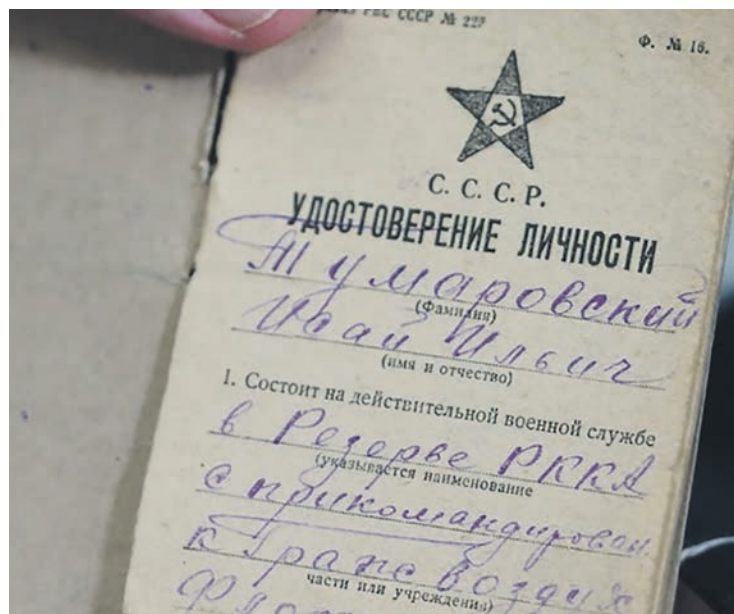 РВС СССР № 229
Ф. № 16.
С. С. С. Р.
УДОСТОВЕРЕНИЕ ЛИЧНОСТИ
Тумаровский
(фамилия)
Исай Ильич
(имя и отчество)
1. Состоит на действительной военной службе
в Резерве РККА
(указывается наименование
с прикомандирован.
к Гражд Воздуш
части или учреждения)